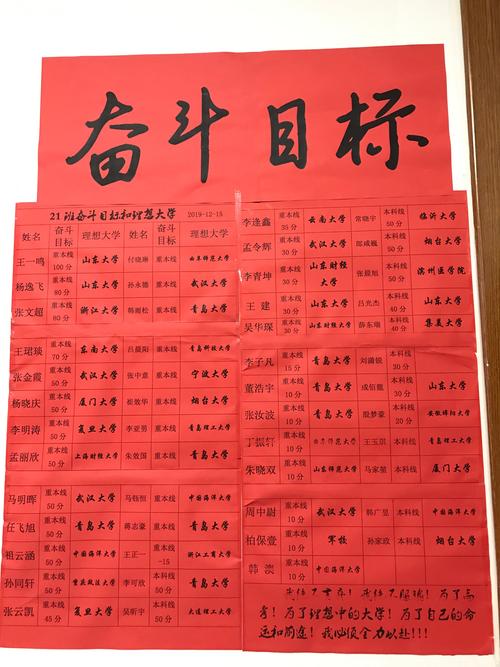 奋斗目标
21班奋斗目标和理想大学 2019-12-15
姓名 奋斗目标 理想大学 姓名 奋斗目标 理想大学
王一鸣 重本线100分 山东大学 付晓琳 重本线 曲阜师范大学
杨逸飞 重本线80分 山东大学 孙永德 重本线 武汉大学
张文超 重本线80分 浙江大学 韩雨松 重本线 青岛大学
王珺琰 重本线70分 东南大学 吕晨阳 重本线 青岛科技大学
张金霞 重本线50分 武汉大学 张中意 重本线 宁波大学
杨晓庆 重本线50分 厦门大学 崔效华 重本线 烟台大学
李明涛 重本线50分 复旦大学 李亚男 重本线 青岛理工大学
孟丽欣 重本线50分 上海财经大学 朱效国 重本线 青岛大学
马明晖 重本线50分 武汉大学 马钰恒 重本线 中国海洋大学
任飞旭 重本线50分 青岛大学 蒋志豪 重本线 青岛大学
祖云涵 重本线50分 中国海洋大学 王正一 重本线-15 浙江工商大学
孙同轩 重本线50分 重庆政法大学 李可欣 本科线50分 青岛大学
张云凯 重本线45分 复旦大学 吴昕宇 本科线50分 大连理工大学
李逢鑫 重本线35分 云南大学 常晓宇 本科线50分 临沂大学
孟令辉 重本线30分 武汉大学 郎咸巍 本科线50分 烟台大学
李青坤 重本线30分 山东财经大学 张晨旭 本科线50分 滨州医学院
王建 重本线30分 山东大学 吕光杰 本科线40分 山东大学
吴华琛 重本线30分 山东财经大学 薛东瑞 本科线40分 集美大学
李子凡 重本线15分 青岛大学 刘璐锐 本科线30分
董浩宇 重本线10分 青岛大学 成佰龍 本科线30分 山东大学
张汝波 重本线10分 青岛大学 殷梦豪 本科线20分 安徽师范大学
丁振轩 重本线10分 曲阜师范大学 王玉琪 本科线10分 青岛理工大学
朱晓双 重本线10分 山东师范大学 马家堃 本科线10分 厦门大学
周中尉 重本线10分 武汉大学 韩广昱 本科线10分 中国海洋大学
柏保壹 重本线10分 军校 孙家政 本科线10分 烟台大学
韩 重本线10分 中国海洋大学
为了高
考！为了理想中的大学！为了自己的命
运和前途！我必须全力以赴！！！